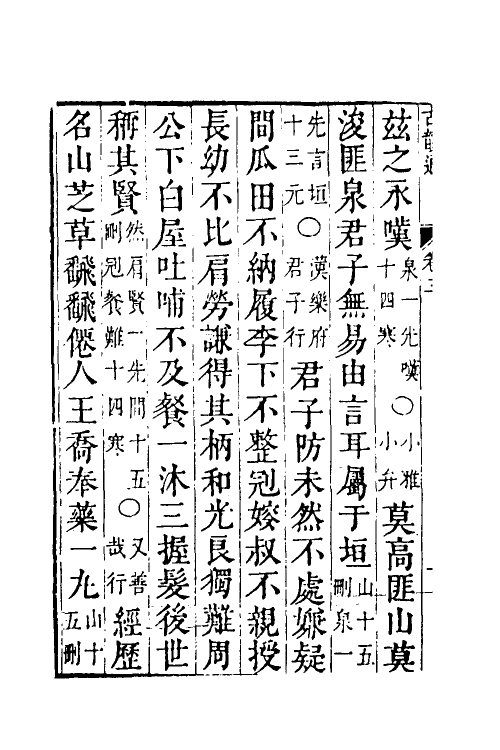 古韻通 卷三
茲之永嘆泉一先嘆十四寒〇小雅小弁莫高匪山莫
浚匪泉君子無易由言耳屬于垣山十五刪泉一
先言垣十三元〇漢樂府君子行君子防未然不處嫌疑
間瓜田不納履李下不整冠嫂叔不親授
長幼不比肩勞謙得其柄和光艮獨難周
公下白屋吐哺不及餐一沐三握髮後世
稱其賢然肩賢一先間十五刪冠餐難十四寒〇又善哉行經歷
名山芝草飜飜僊人王喬奉藥一丸山十五刪